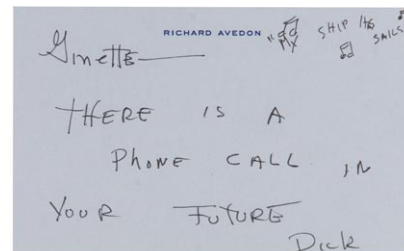 RICHARD AVEDON
"MY SHIP HAS SAILS
Ginette
THERE IS A
PHONE CALL IN
YOUR FUTURE
Dick